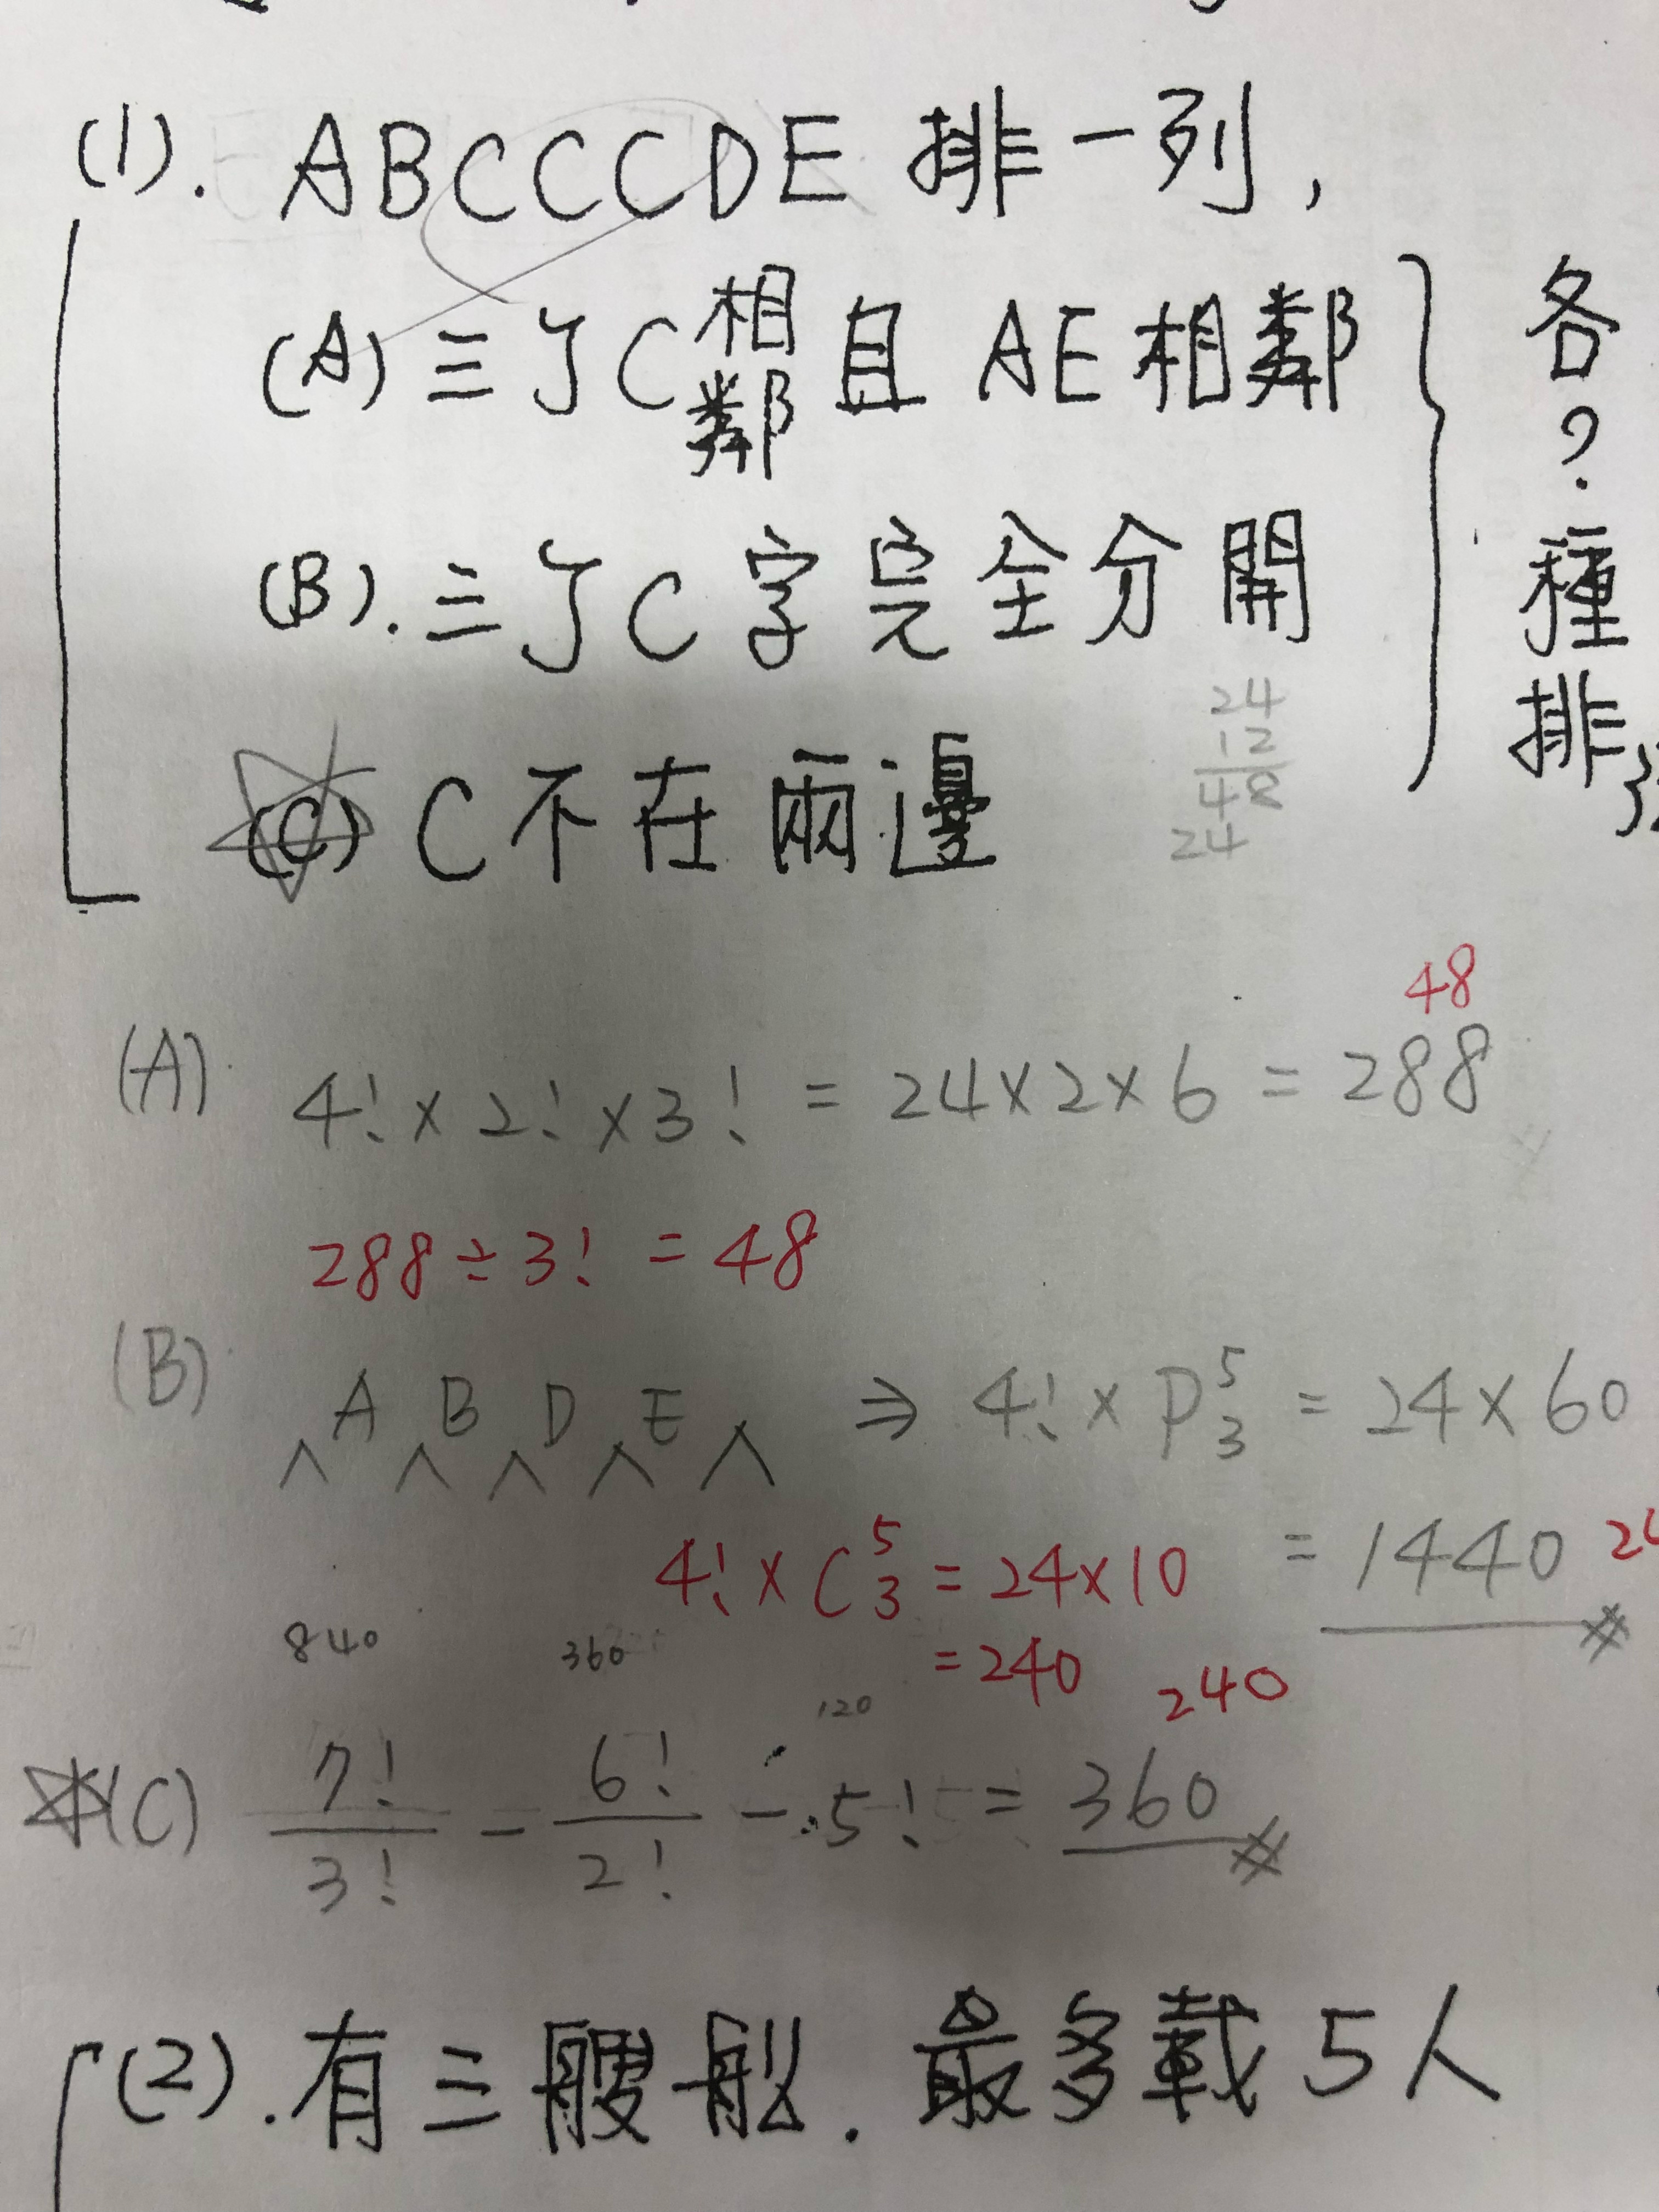 (1). ABCCCDE 排一列,
(A) 三丁C相鄰且 AE相鄰
(B). 三丁C字完全分開
(C) C不在兩邊
各?種排
24
12
48
24
48
(A) 4! × 2! × 3! = 24×2×6 = 288
288÷3! = 48
(B) ∧A∧B∧D∧E∧ ⇒ 4! × P⁵₃ = 24×60
= 1440
4! × C⁵₃ = 24×10
= 240
840 360 120 240
(C) 7!/3! - 6!/2! - 5! = 360
(2). 有三艘船. 最多載5人